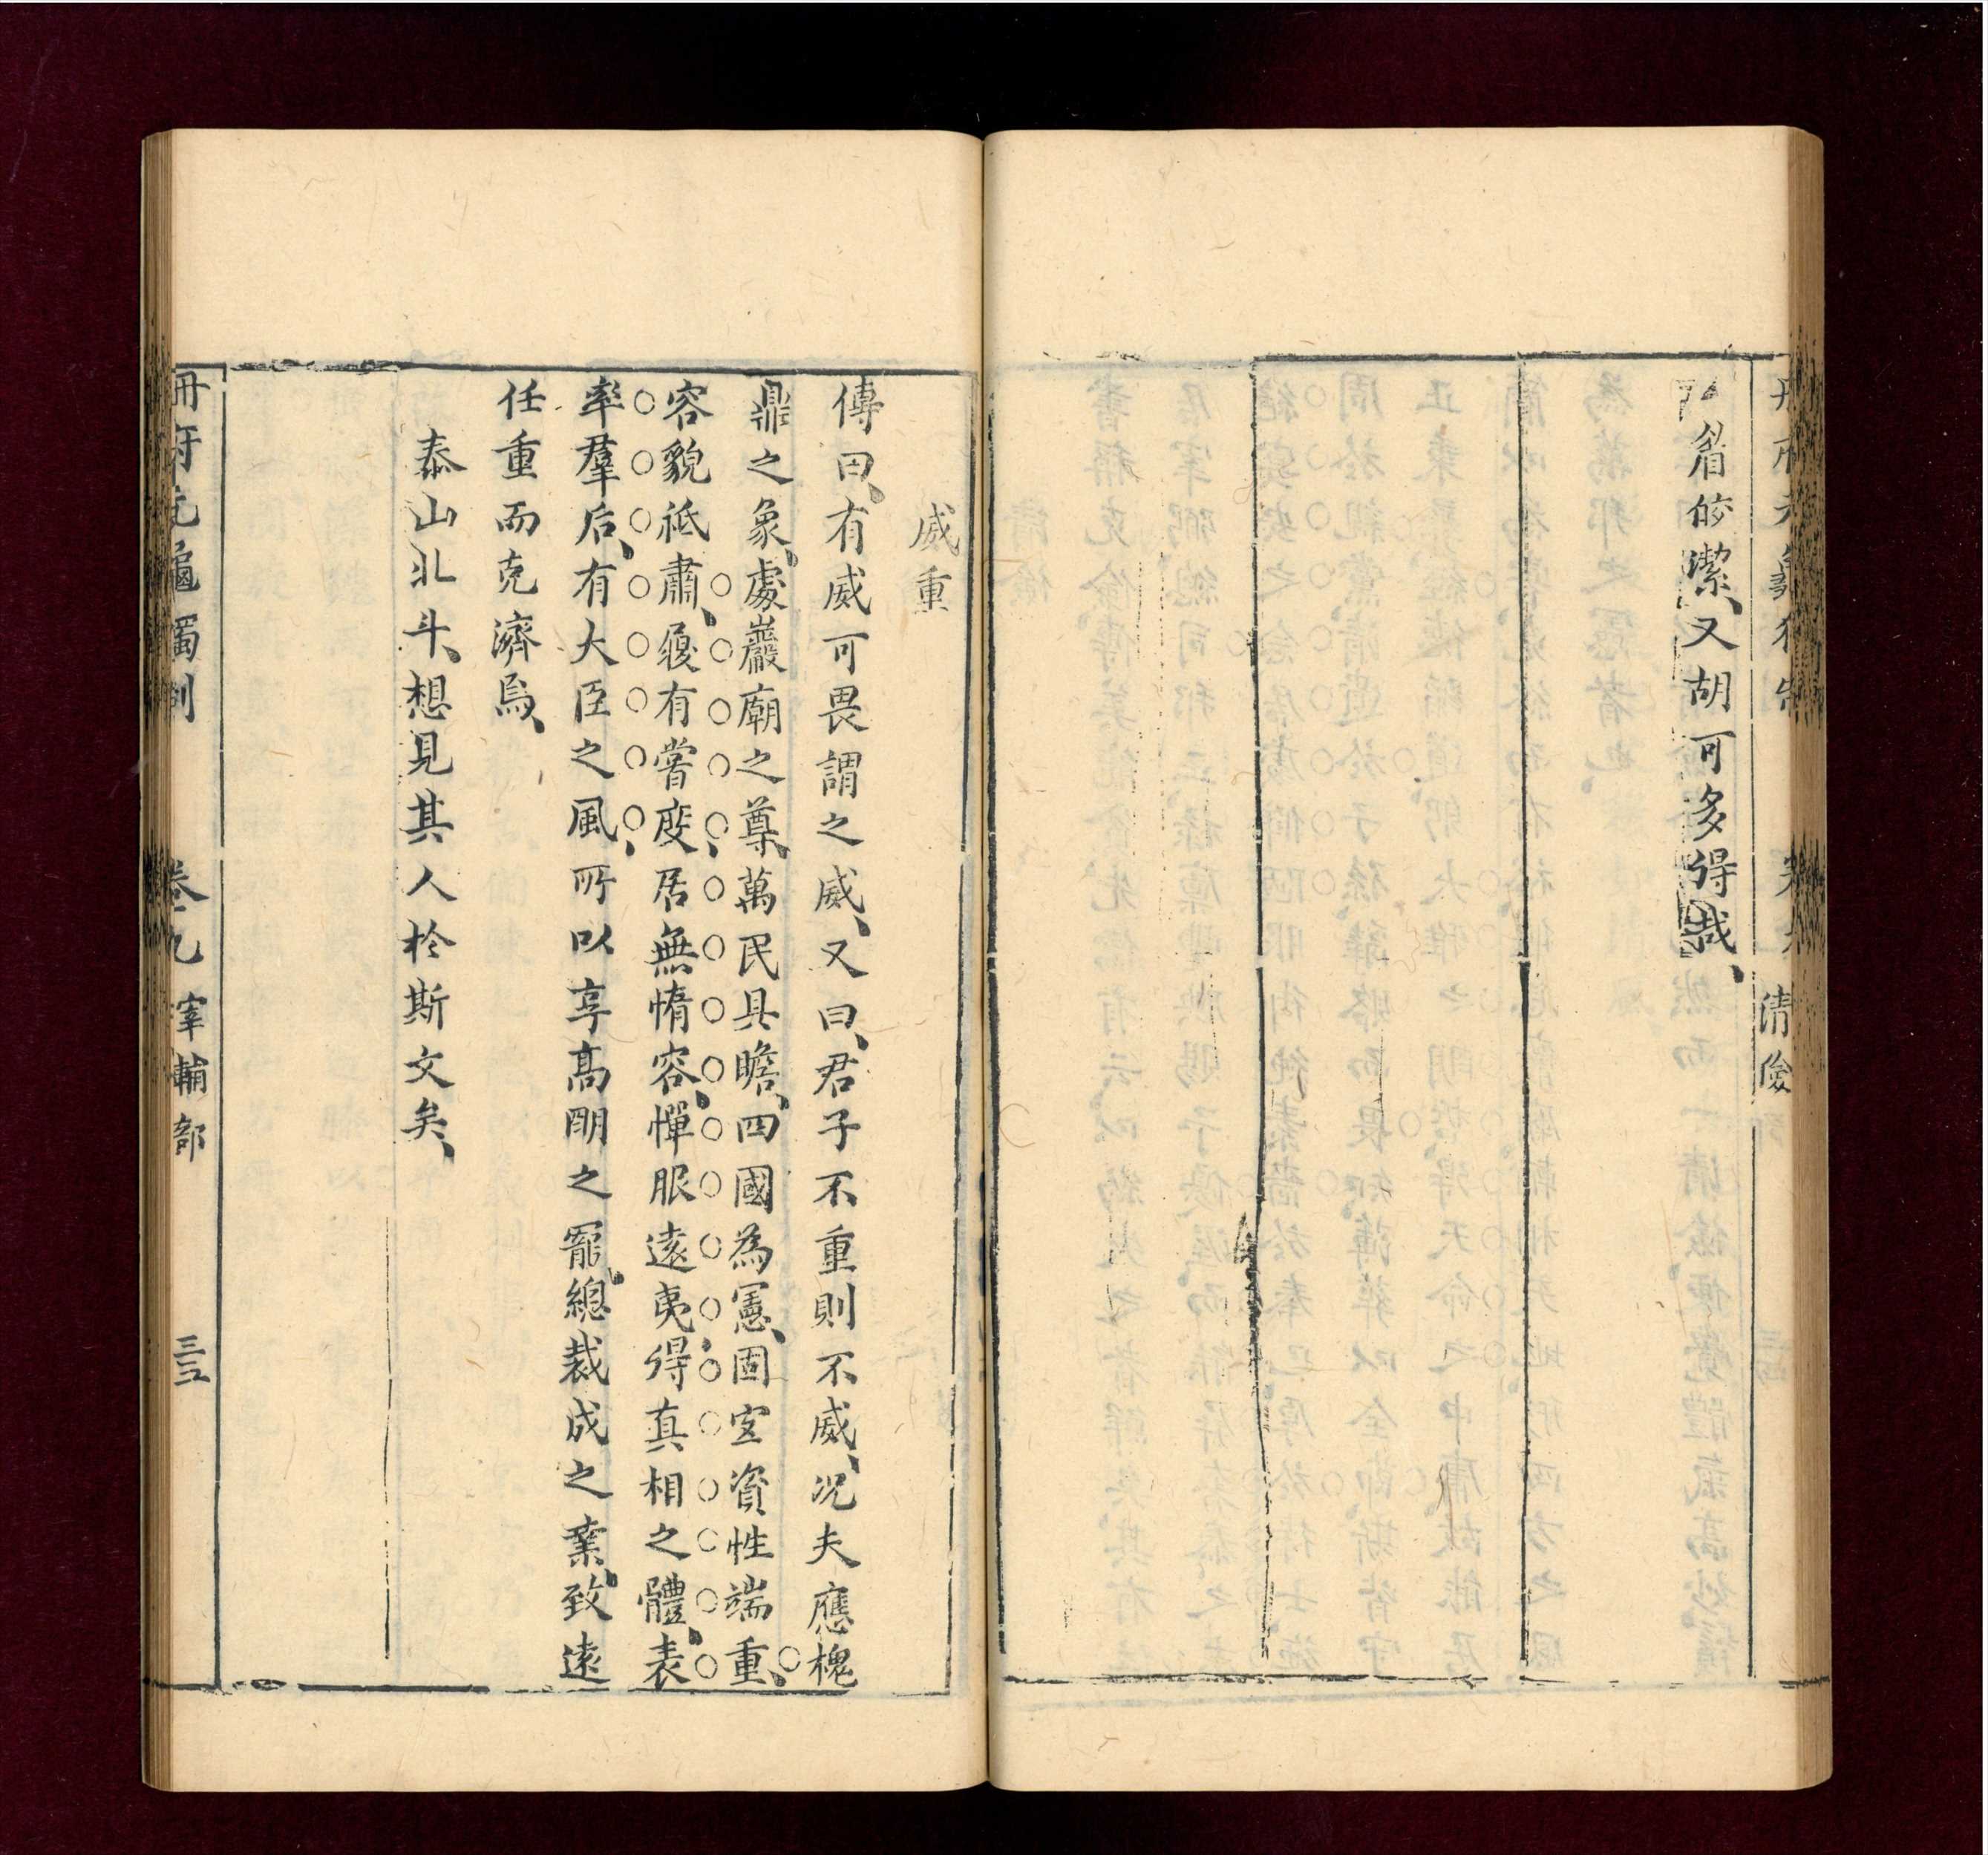 清儉
皭潔、又胡可多得哉、
威重
傳曰、有威可畏謂之威、又曰、君子不重則不威、況夫應槐
鼎之象、處巖廟之尊、萬民具瞻、四國為憲、固宜資性端重、
容貌祗肅、履有嘗度、居無惰容、憚服遠夷、得真相之體、表
率羣后、有大臣之風、所以享高明之寵、總裁成之業、致遠
任重而克濟焉、
泰山北斗、想見其人於斯文矣、
冊府元龜獨制 卷九 宰輔部 三五